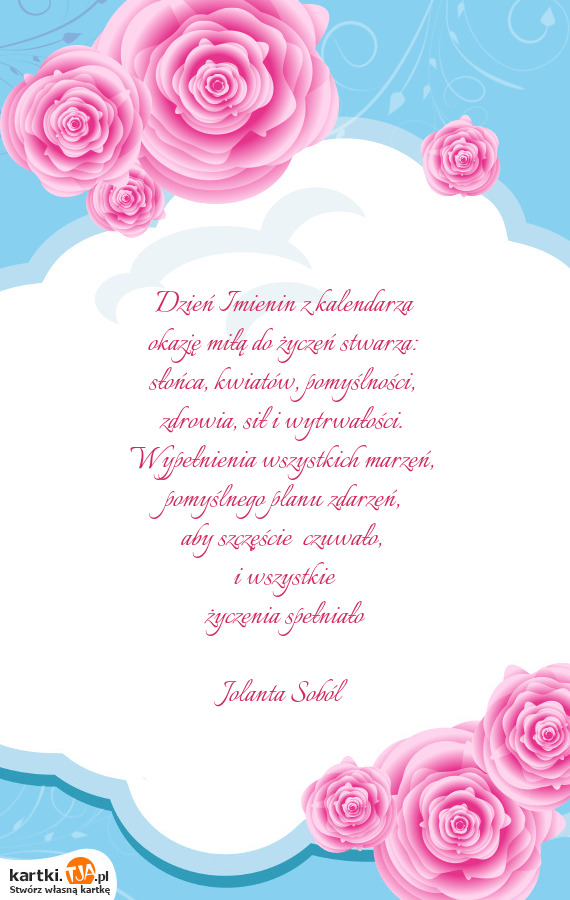 Dzień Imienin z kalendarza
okazję miłą do życzeń stwarza:
słońca, kwiatów, pomyślności,
zdrowia, sił i wytrwałości.
Wypełnienia wszystkich marzeń,
pomyślnego planu zdarzeń,
aby szczęście  czuwało,
i wszystkie
życzenia spełniało
Jolanta Soból
kartki.TJA.pl
Stwórz własną kartkę